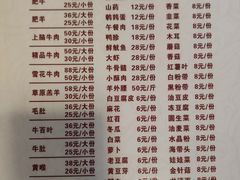 肥牛
25元/小份
肥羊 36元/大份
25元/小份
上脑牛肉 50元/大份
30元/小份
精品牛肉 50元/大份
30元/小份
雪花牛肉 58元/大份
30元/小份
草原羔羊 58元/大份
30元/小份
毛肚 36元/大份
25元/小份
牛百叶 36元/大份
25元/小份
牛肚 36元/大份
25元/小份
黄喉 38元/大份
26元/小份
山药 12元/份
鹌鹑蛋 12元/份
午餐肉 12元/份
鸭胗 18元/份
鲜鱿鱼 28元/份
大虾 28元/份
牛骨髓 28元/份
小酥肉 28元/份
羊外腰
白豆腐皮 6元/份
麻花 6元/份
红苕 6元/份
冬瓜 6元/份
白菜 6元/份
萝卜 6元/份
老豆腐 6元/份
黄豆芽 6元/份
香菜 8元/份
韭菜 8元/份
木耳 8元/份
蘑菇 8元/份
香菇 8元/份
红薯叶 8元/份
白粉带 8元/份
黑粉带 8元/份
油豆皮 8元/份
豆苗 8元/份
生菜 8元/份
油麦菜 8元/份
水晶粉 8元/份
海带头 8元/份
娃娃菜 8元/份
金针菇 8元/份